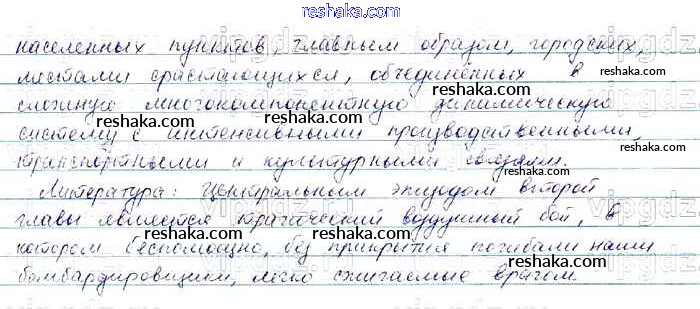 reshaka.com
населенных пунктов, главным образом, городских,
местами срастающихся, объединённых в
reshaka.com
сложную многокомпонентную динамическую
reshaka.com
систему с интенсивными производственными,
reshaka.com
транспортными и культурными связями.
reshaka.com
Литература: Центральным эпизодом второй
главы является трагический воздушный бой, в
reshaka.com
котором беспомощно, без прикрытия погибали наши
бомбардировщики, легко сжигаемые врагом.
reshaka.com
reshaka.com